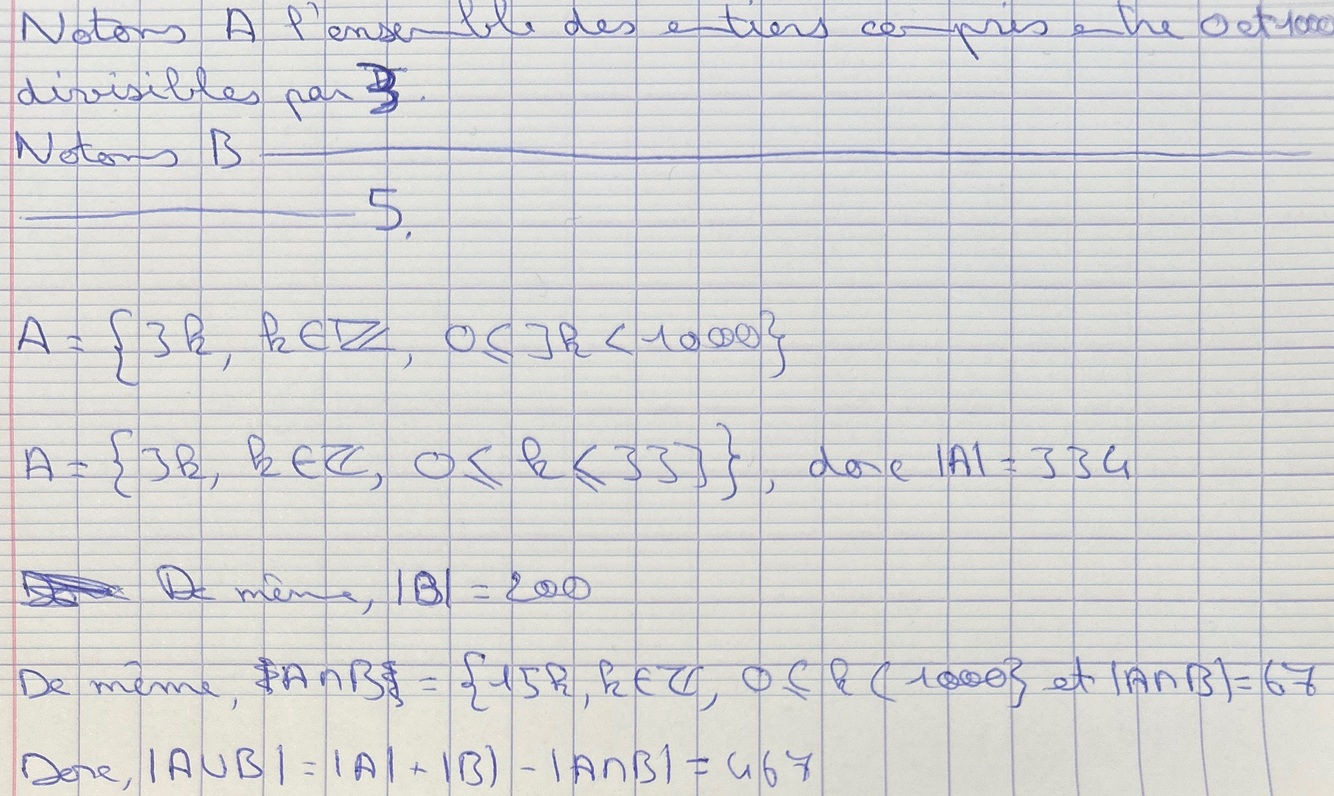 Notons A l'ensemble des entiers compris entre 0 et 1000
divisibles par 3.
Notons B
5.
A = {3k, k ∈ ℤ, 0 ⩽ 3k < 1000}
A = {3k, k ∈ ℤ, 0 ⩽ k ⩽ 333}, donc |A| = 334
De même, |B| = 200
De même, A∩B = {15k, k ∈ ℤ, 0 ⩽ k < 1000} et |A∩B| = 67
Donc, |A∪B| = |A| + |B| - |A∩B| = 467